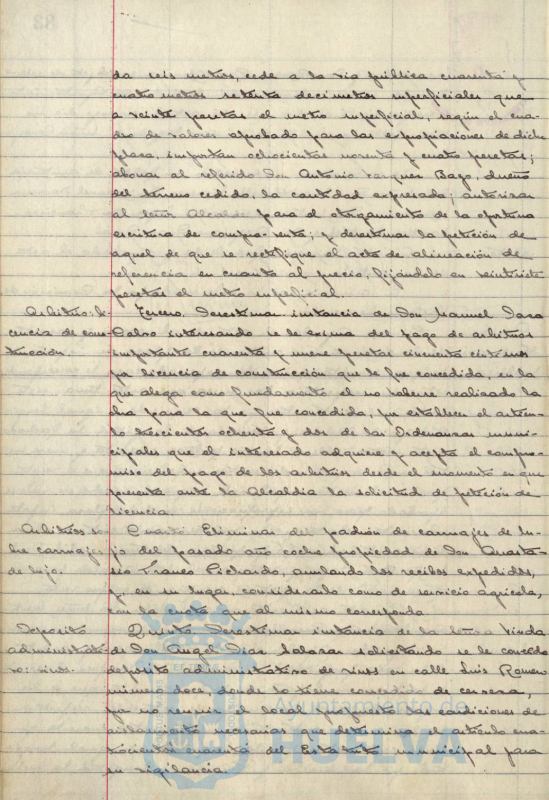 da seis metros, cede a la via pública cuarenta y
cuatro metros setenta decimetros superficiales que
a veinte pesetas el metro superficial, según el cua-
dro de valores aprobado para las expropiaciones de dicha
plaza, importan ochocientas noventa y cuatro pesetas;
abonar al referido Don Antonio Vazquez Bago, dueño
del terreno cedido, la cantidad expresada; autorizar
al Señor Alcalde para el otorgamiento de la oportuna
escritura de compra-venta; y desestimar la petición de
aquel de que se rectifique el acta de alineación de
referencia en cuanto al precio, fijándolo en veintisiete
pesetas el metro superficial.
Arbitrios: li- Tercero. Desestimar instancia de Don Manuel
cencia de cons- Calvo interesando se le exima del pago de arbitrios
trucción. importante cuarenta y nueve pesetas cincuenta céntimos
por licencia de construcción que le fue concedida, en la
que alega como fundamento el no haberse realizado la
obra para la que fue concedida, por establecer el articu-
lo trescientos ochenta y dos de las Ordenanzas muni-
cipales que el interesado adquiere y acepta el compro-
miso del pago de los arbitrios desde el momento en que
presenta ante la Alcaldia la solicitud de petición de
licencia.
Arbitrios so- Cuarto. Eliminar del padrón de carruajes de lu-
bre carruajes jo del pasado año coche propiedad de Don Anasta-
de lujo. sio Franco Pichardo, anulando los recibos expedidos,
y, en su lugar, considerarlo como de servicio agricola,
con la cuota que al mismo corresponda.
Deposito Quinto. Desestimar instancia de la Señora Viuda
administrati- de Don Angel Diaz Salazar solicitando se le conceda
vo: vinos. depósito administrativo de vinos en calle Luis Romero
número doce, donde lo tiene concedido de cerveza,
por no reunir el local propuesto las condiciones de
aislamiento necesarias que determina el articulo cua-
trocientos cuarenta del Estatuto municipal para
su vigilancia.
Ayuntamiento de
HUELVA